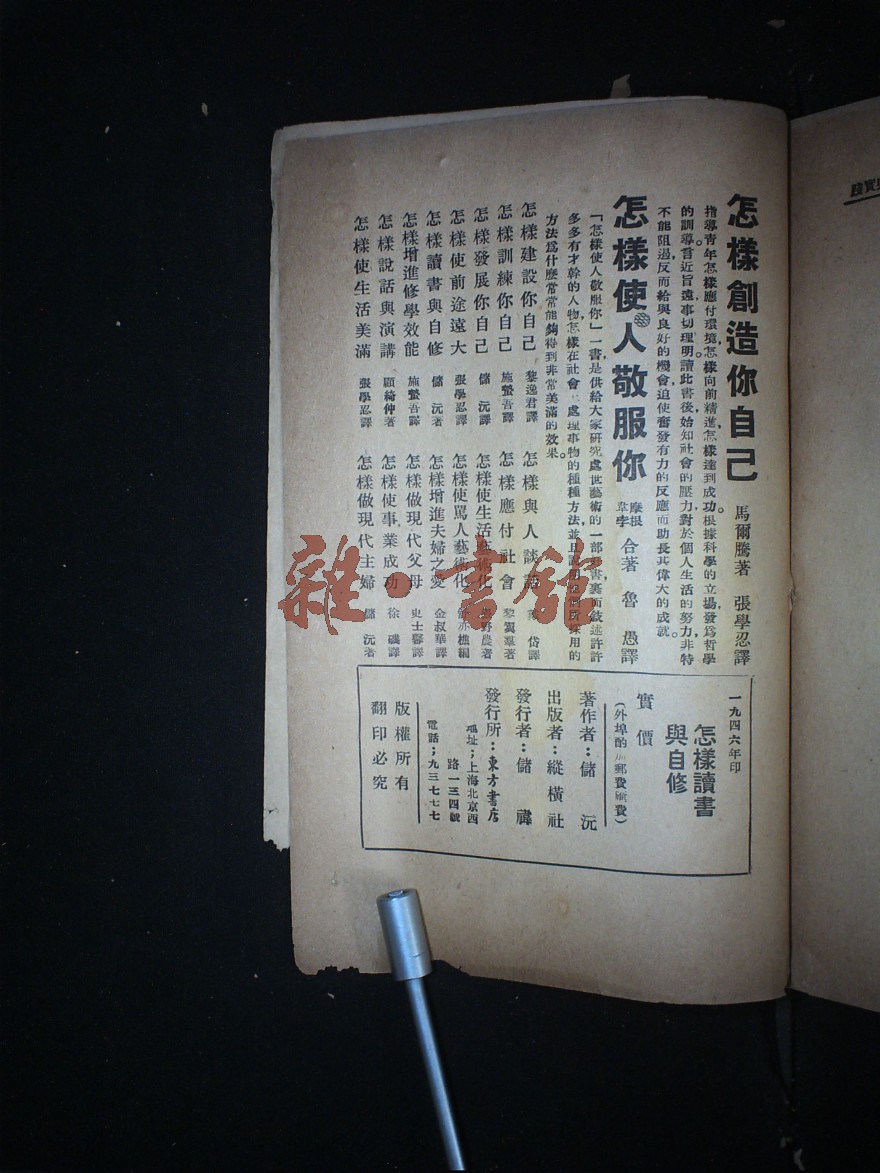 怎樣創造你自己 馬爾騰著 張學忍譯
指導青年怎樣應付環境,怎樣向前精進,怎樣達到成功。根據科學的立場發為哲學
的訓導。言近旨遠,事切理明。讀此書後始知社會的壓力,對於個人生活的努力,非特
不能阻遏反而給與良好的機會,迫使奮發有力的反應而助長其偉大的成就。
怎樣使人敬服你 摩根 韋李 合著 魯愚譯
「怎樣使人敬服你」一書,是供給大家研究處世藝術的一部 書。裏面敍述許許
多多有才幹的人物,怎樣在社會上處理事物的種種方法,並且 所採用的
方法為什麼常常能夠得到非常美滿的效果。
怎樣建設你自己 黎逸君譯
怎樣訓練你自己 施螫吾譯
怎樣發展你自己 儲沅譯
怎樣使前途遠大 張學忍譯
怎樣讀書與自修 儲沅著
怎樣增進修學效能 施螫吾譯
怎樣說話與演講 顧綺仲著
怎樣使生活美滿 張學忍譯
怎樣與人談話 岱譯
怎樣應付社會 黎翼羣著
怎樣使生活藝術化 野農著
怎樣使罵人藝術化 亦樵編
怎樣增進夫婦之愛 金叔華譯
怎樣做現代父母 史士馨譯
怎樣使事業成功 徐 譯
怎樣做現代主婦 儲沅著
一九四六年印
怎樣讀書
與自修
實價
(外埠酌加郵費匯費)
著作者:儲沅
出版者:縱橫社
發行者:儲禕
發行所:東方書店
地址:上海北京西
路一三四號
電話:九三七七七
版權所有
翻印必究
雜·書館
與實踐